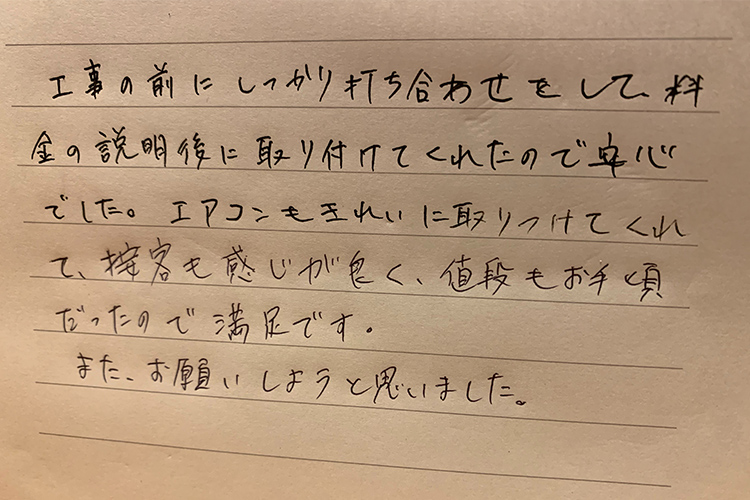 工事の前にしっかり打ち合わせをして、料
金の説明後に取り付けてくれたので安心
でした。エアコンもきれいに取りつけてくれ
て、接客も感じが良く、値段もお手頃
だったので満足です。
また、お願いしようと思いました。